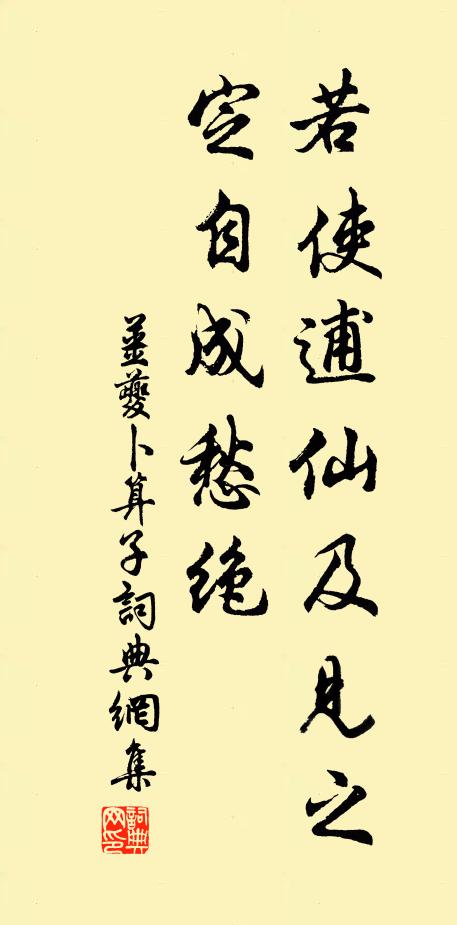 若使逋仙及見之
定自成愁絶
薑夔卜算子詞典網集
詞典
网印